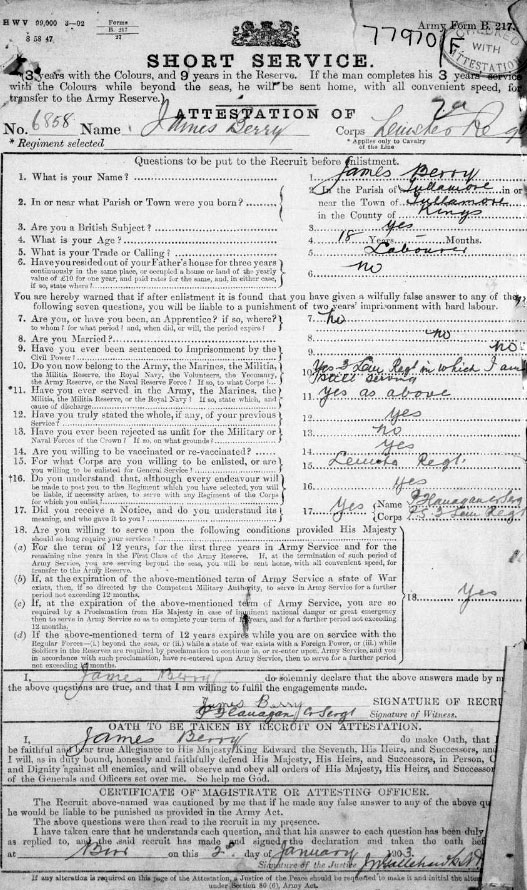 H W V 99,000 3—02
Forms
B. 217
27
8 58 47
77970
Army Form B. 217.
WITH
ATTESTATION
SHORT SERVICE.
(3 years with the Colours, and 9 years in the Reserve. If the man completes his 3 years' service
with the Colours while beyond the seas, he will be sent home, with all convenient speed, for
transfer to the Army Reserve.)
ATTESTATION OF
No. 6858 Name James Berry Corps
* Regiment selected
* Applies only to Cavalry
of the Line
Questions to be put to the Recruit before Enlistment.
1. What is your Name? 1. James Berry
2. In or near what Parish or Town were you born? 2. In the Parish of Tullamore in or
near the Town of Tullamore
in the County of Kings
3. Are you a British Subject? 3. Yes
4. What is your Age? 4. 18 Years Months.
5. What is your Trade or Calling? 5. Labourer
6. Have you resided out of your Father's house for three years
continuously in the same place, or occupied a house or land of the yearly
value of £10 for one year, and paid rates for the same, and, in either case,
if so, state where? 6. no
You are hereby warned that if after enlistment it is found that you have given a wilfully false answer to any of the
following seven questions, you will be liable to a punishment of two years' imprisonment with hard labour.
7. Are you, or have you been, an Apprentice? if so, where?
to whom? for what period? and, when did, or will, the period expire? 7. no
8. Are you Married? 8. no
9. Have you ever been sentenced to Imprisonment by the
Civil Power? 9. no
10. Do you now belong to the Army, the Marines, the Militia,
the Militia Reserve, the Royal Navy, the Volunteers, the Yeomanry,
the Army Reserve, or the Naval Reserve Force? If so, to what Corps? 10. Yes 3 Lein Regt in which I am
still serving
*11. Have you ever served in the Army, the Marines, the
Militia, the Militia Reserve, or the Royal Navy? If so, state which, and
cause of discharge 11. yes as above
12. Have you truly stated the whole, if any, of your previous
Service? 12. yes
13. Have you ever been rejected as unfit for the Military or
Naval Forces of the Crown? If so, on what grounds? 13. no
14. Are you willing to be vaccinated or re-vaccinated? 14. yes
15. For what Corps are you willing to be enlisted, or are
you willing to be enlisted for General Service? 15. Regt.
†16. Do you understand that, although every endeavour will
be made to post you to the Regiment which you have selected, you will
be liable, if necessity arises, to serve with any Regiment of the Corps
for which you enlist 16. yes
17. Did you receive a Notice, and do you understand its
meaning, and who gave it to you? 17. Yes Name Flanagan
Corps 3 Lein Regt
18. Are you willing to serve upon the following conditions provided His Majesty
should so long require your services?
(a) For the term of 12 years, for the first three years in Army Service and for the
remaining nine years in the First Class of the Army Reserve. If, at the termination of such period of
Army Service, you are serving beyond the seas, you will be sent home, with all convenient speed, for
transfer to the Army Reserve.
(b) If, at the expiration of the above-mentioned term of Army Service a state of War
exists, then, if so directed by the Competent Military Authority, to serve in Army Service for a further
period not exceeding 12 months.
(c) If, at the expiration of the above-mentioned term of Army Service, you are so
required by a Proclamation from His Majesty in case of imminent national danger or great emergency
then to serve in Army Service so as to complete your term of years, and for a further period not exceeding
12 months.
(d) If the above-mentioned term of 12 years expires while you are on service with the
Regular Forces—(i.) beyond the seas, or (ii.) while a state of war exists with a Foreign Power, or (iii.) while
Soldiers in the Reserve are required by proclamation to continue in, or re-enter upon, Army Service, and you
in accordance with such proclamation, have re-entered upon Army Service, then to serve for a further period
not exceeding months.
18. Yes
I, James Berry do solemnly declare that the above answers made by m
the above questions are true, and that I am willing to fulfil the engagements made.
James Berry SIGNATURE OF RECRU
Flanagan C Sergt Signature of Witness.
OATH TO BE TAKEN BY RECRUIT ON ATTESTATION.
I, James Berry do make Oath, that I
be faithful and bear true Allegiance to His Majesty King Edward the Seventh, His Heirs, and Successors, and
I will, as in duty bound, honestly and faithfully defend His Majesty, His Heirs, and Successors, in Person, C
and Dignity against all enemies, and will observe and obey all orders of His Majesty, His Heirs, and Successor
of the Generals and Officers set over me. So help me God.
CERTIFICATE OF MAGISTRATE OR ATTESTING OFFICER.
The Recruit above-named was cautioned by me that if he made any false answer to any of the above qu
he would be liable to be punished as provided in the Army Act.
The above questions were then read to the recruit in my presence.
I have taken care that he understands each question, and that his answer to each question has been duly
as replied to, and the said recruit has made and signed the declaration and taken the oath bef
at Birr on this 2 day of January 1903
Signature of the Justice
If any alteration is required on this page, a Justice of the Peace should be requested to make it and initial the alter
under Section 80 (6), Army Act.